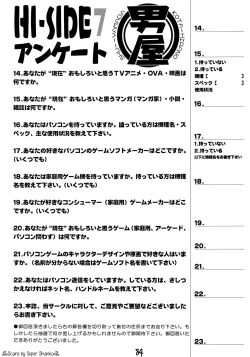 HI-SIDE7
アンケート
男屋
14.あなたが“現在”おもしろいと思うTVアニメ・OVA・映画は
何ですか。
15.あなたが“現在”おもしろいと思うマンガ(マンガ家)・小説・
雑誌は何ですか。
16.あなたはパソコンを持っていますか。語っている方は機種名・ス
ペック、主な使用状況を教えて下さい。
17.あなたの好きなパソコンのゲームソフトメーカーはどこですか。
(いくつでも)
18.あなたは家庭用ゲーム機を持っていますか。持っている方は機種
名を教えて下さい。(いくつでも)
19.あなたが好きなコンシューマー(家庭用)ゲームメーカーはどこ
ですか。(いくつでも)
20.あなたが“現在”おもしろいと思うゲーム(家庭用、アーケード、
パソコン問わず)は何ですか。
21.パソコンゲームのキャラクターデザインや原画で好きな人はいま
すか。(名前が分からない場合はゲームソフト名を書いて下さい)
22.あなたはパソコン通信をしていますか。している方は、さしつ
かえなければネット名、ハンドルネームを教えて下さい。
23.本誌、当サークルに対して、ご意見やご要望などございましたら
お書き下さい。
14.
15.
1.持っていない
2.持っている
機種 [
スペック [
使用状況
16.
17.
1.持っていない
2.持っている
18.
19.
20.
21.
22.
23.
34
Scans by Super Shanko